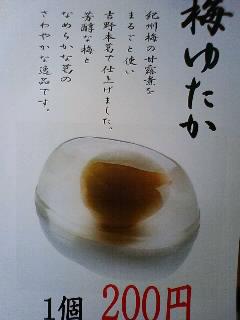 梅ゆたか
紀州梅の甘露煮を
まるごと使い
吉野本葛で仕上げました。
芳醇な梅と
なめらかな葛の
さわやかな逸品です。
1個 200円